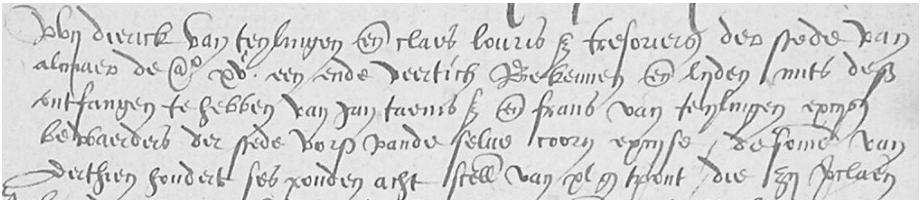 Wij dierick van teylingen en claes louris z tresoriers der stede van
alcmaer de a° xv^c een ende veertich Bekennen en lyden mits desz
ontfangen te hebben van Jan taems z en frans van teylingen exijs
bewaerders der stede vorsz vande selve coorn exijse de some van
derthien hondert ses ponden acht scell van xl g tpont die zij